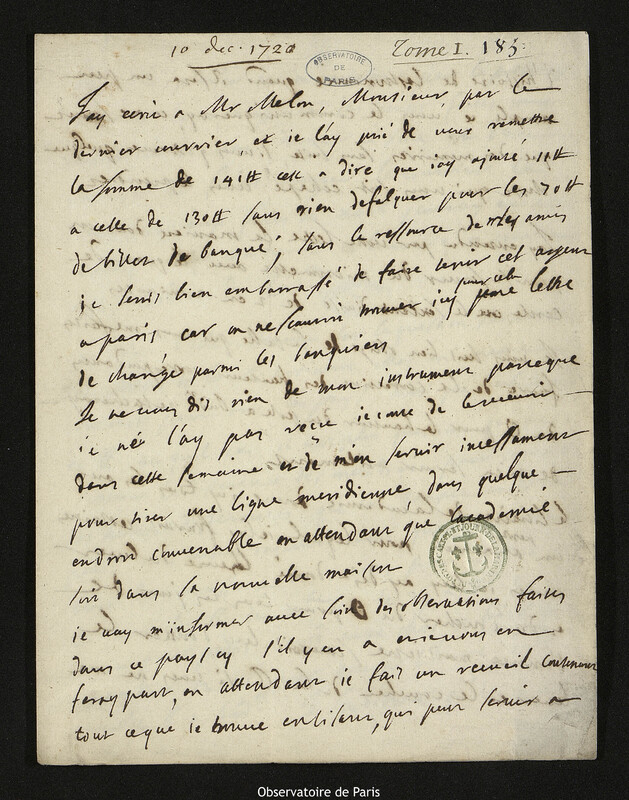 10 dec. 1720
OBSERVATOIRE DE PARIS
Tome I. 185.
J'ay ecrit a Mr Melon, Monsieur, par le
dernier courrier, et ie l'ay prié de vous remettre
la somme de 141tt cest a dire que i'ay ajouté 11tt
a celle de 130tt sans rien defalquer pour les 70tt
de billet de banque, sans le ressource de mes amis
ie serois bien embarrassé de faire tenir cet argent
a paris car on ne scauroit trouver icy pour cela une lettre
de change parmi les banquiers
Je ne vous dis rien de mon instrument parceque
ie ne l'ay pas reçu ie conte de le recevoir
dans cette semaine et de m'en servir incessament
pour tirer une ligne meridienne dans quelque
endroit convenable en attendant que l'academie
soit dans sa nouvelle maison
ie vay m'informer avec soin des observations faites
dans ce pays cy s'il y en a
part, en attendant ie fait un recueil contenant
tout ce que ie trouve en lisant, qui peut servir a
Observatoire de Paris